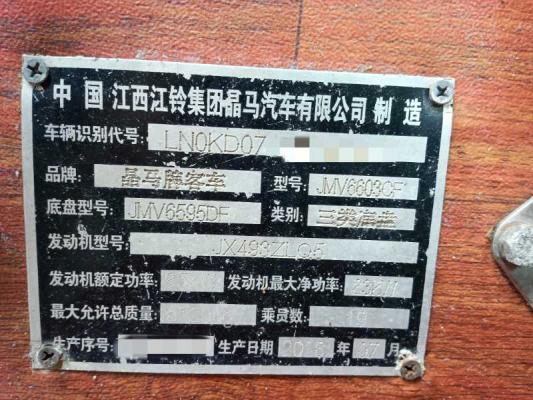 中国 江西江铃集团晶马汽车有限公司 制造
车辆识别代号: LN0KD07
品牌: 晶马牌客车 型号: JMV6603CF
底盘型号: JMV6595DF 类别: 三类底盘
发动机型号: JX493ZLQ5
发动机额定功率: 发动机最大净功率:
最大允许总质量: 乘员数: 19
生产序号: 生产日期 年 月